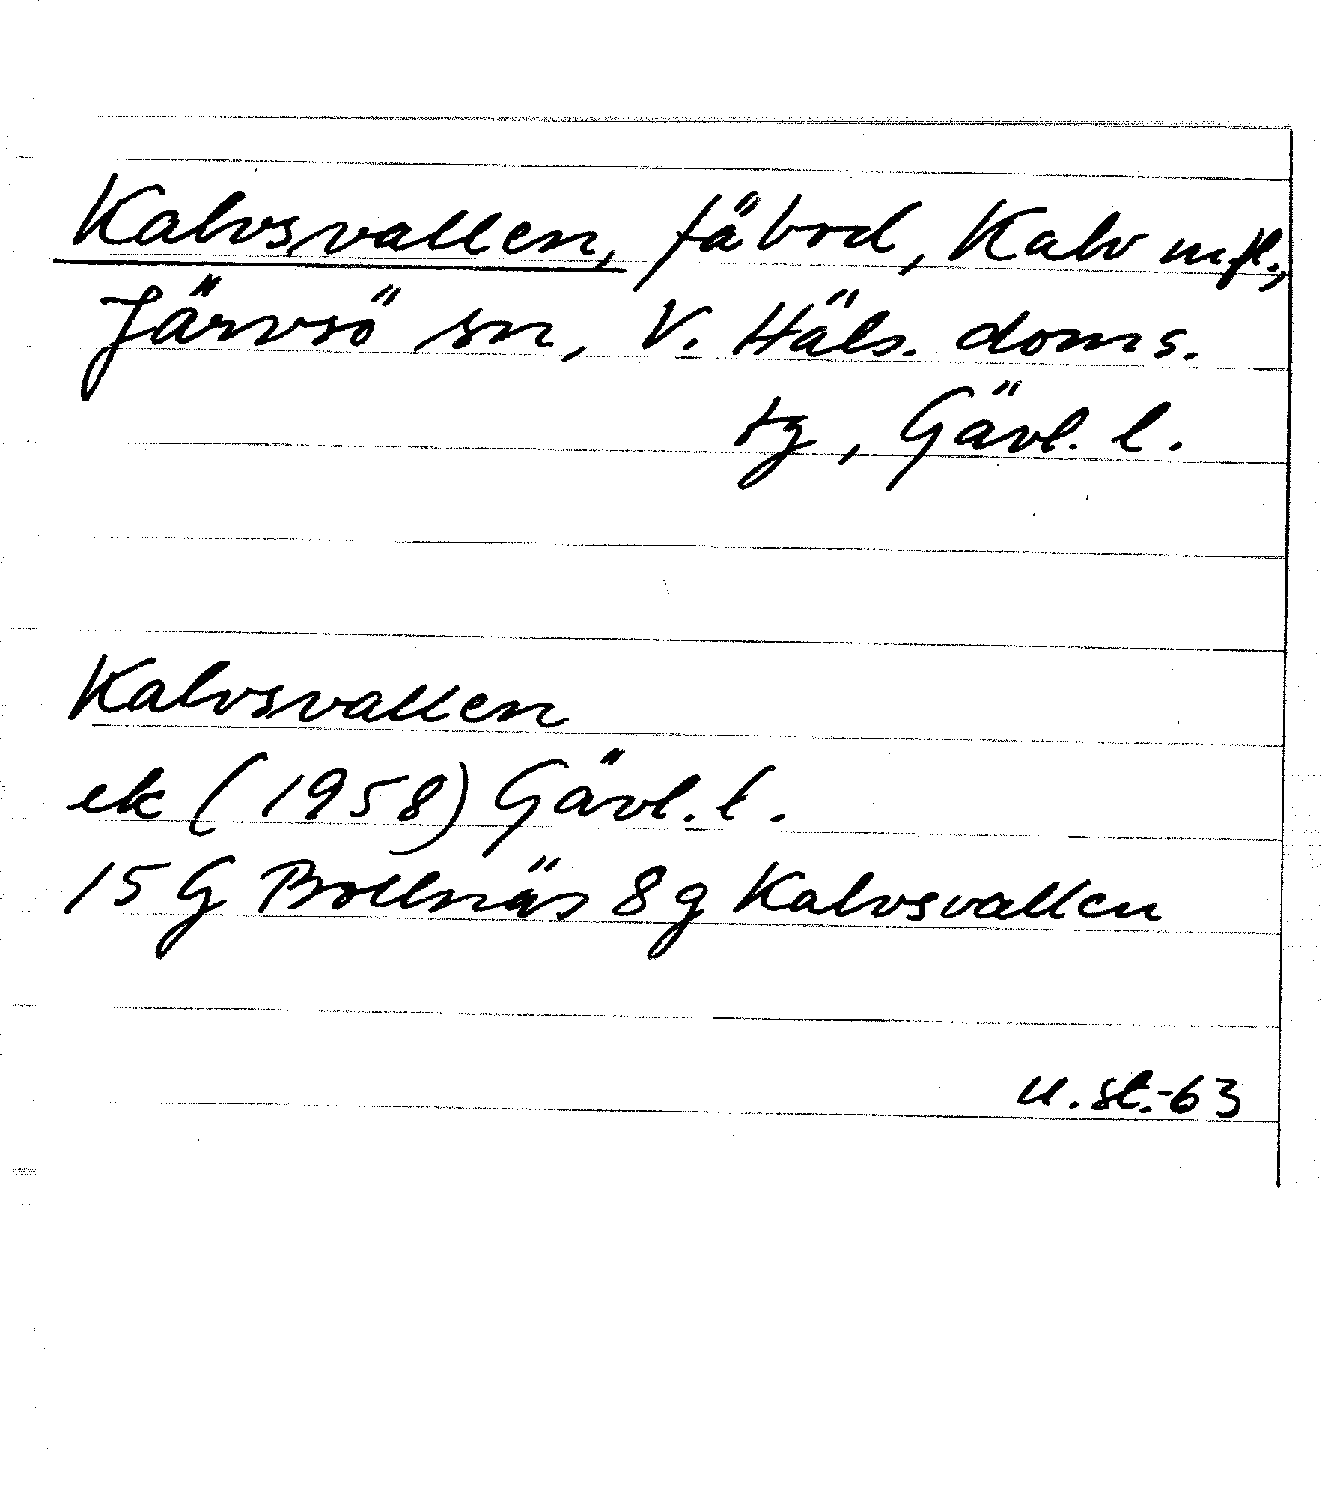 Kalvsvallen, fäbod, Kalv m.fl.,
Järvsö sn, V. Häls. doms.
tg, Gävl. l.
Kalvsvallen
ek (1958) Gävl. l.
15 G Bollnäs 8 g Kalvsvallen
u. st.-63